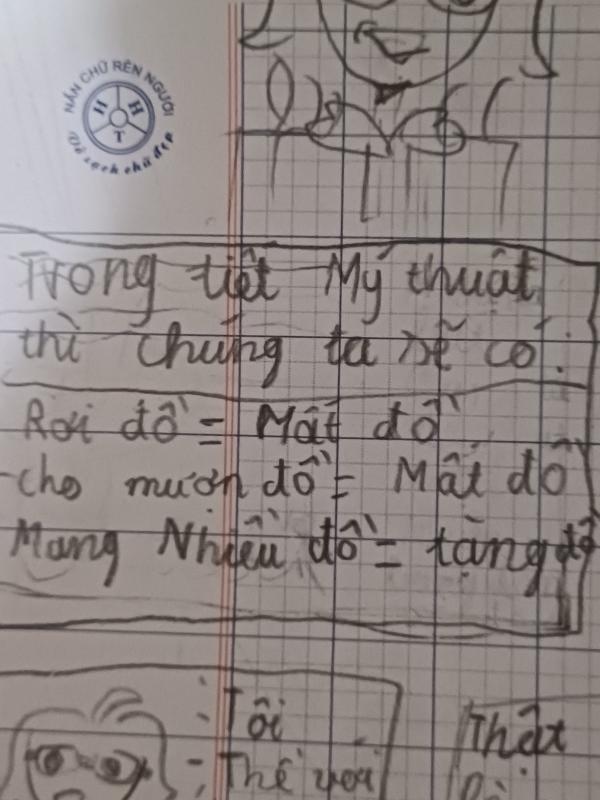 NẮN CHỮ RÈN NGƯỜI
H H
T
Vở sạch chữ đẹp
Trong tiết Mỹ thuật
thì chúng ta sẽ có:
Rơi đồ = Mất đồ
cho mượn đồ = Mất đồ
Mang Nhiều đồ = tặng đồ
: Tôi
Thật
- Thế